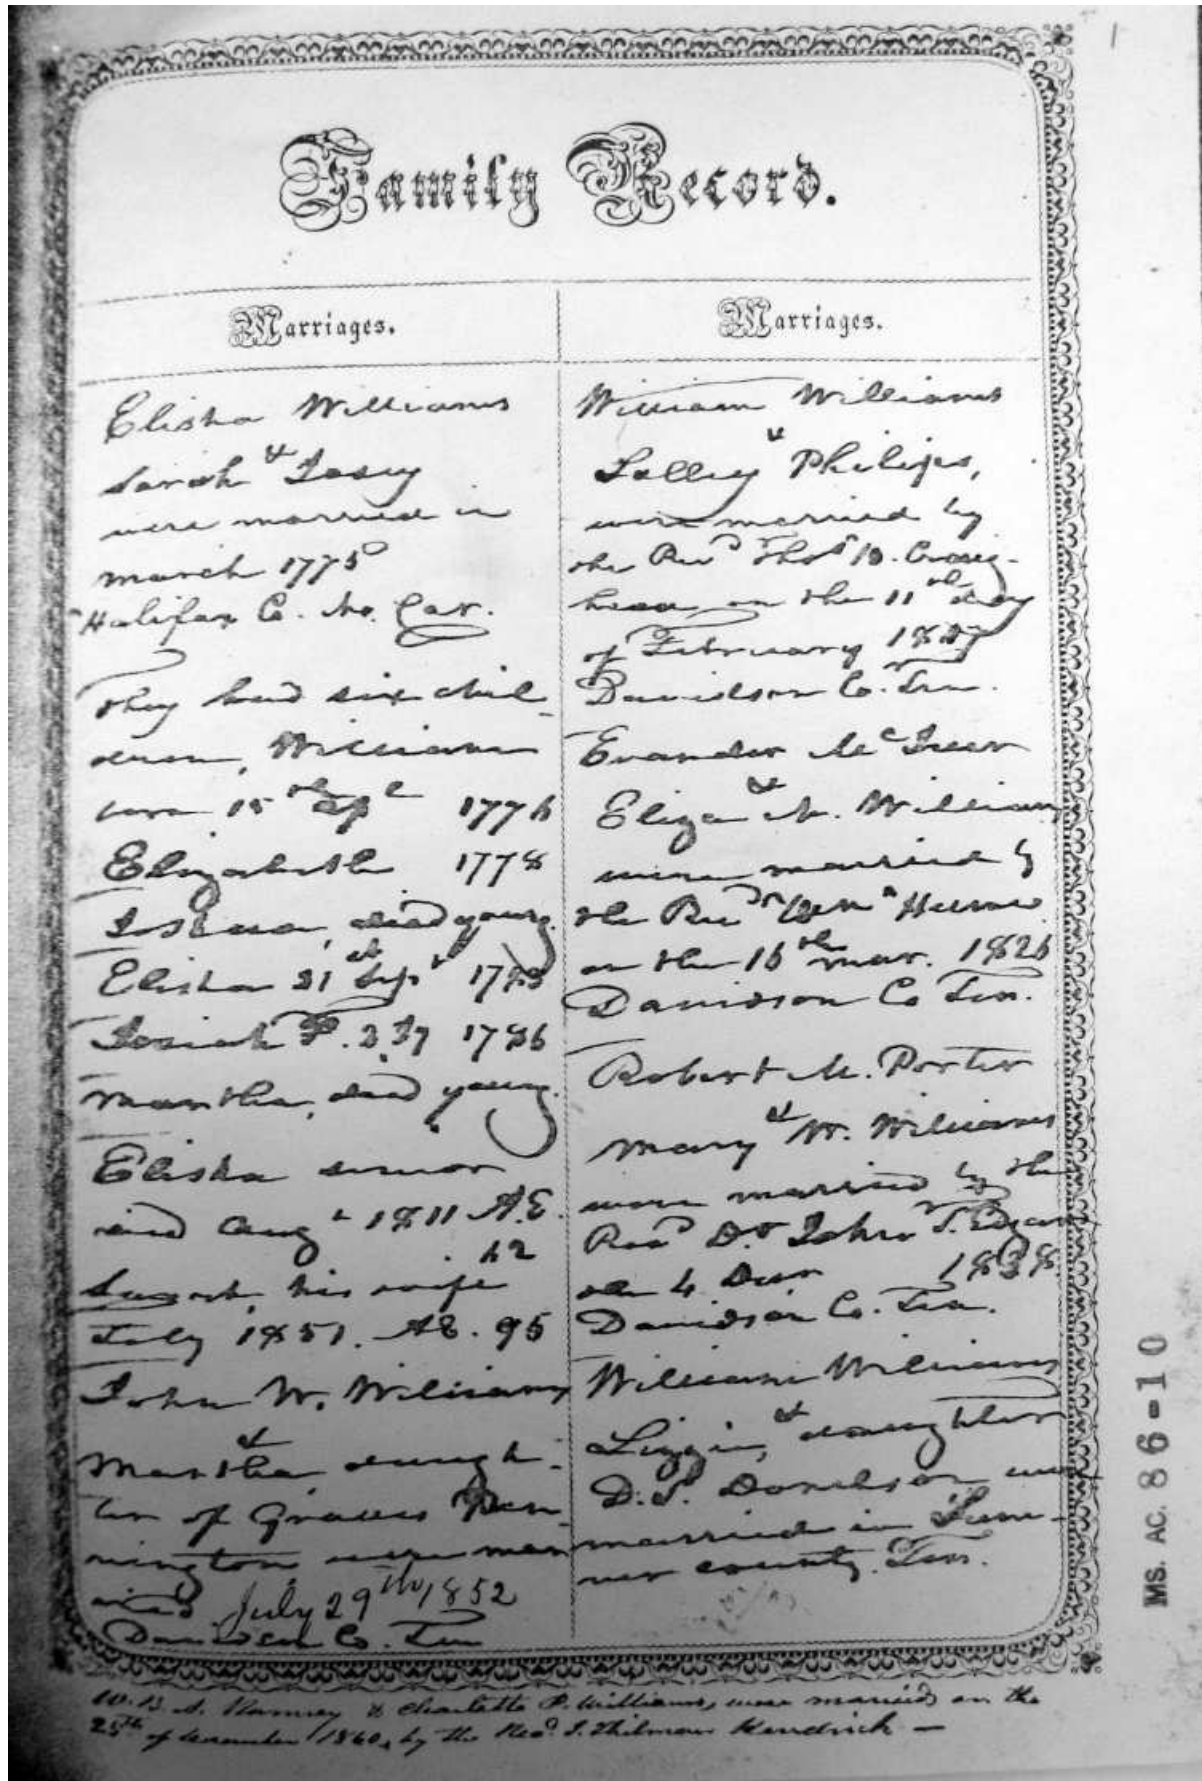 1
Family Record.
Marriages.
Elisha Williams
&
Sarah Josey
were married in
March 1775
Halifax C. No. Car.
They had six chil-
dren, William
born 15th Sepl 1776
Elizabeth 1778
Joshua, died young.
Elisha 21st Sept 1783
Josiah F. 2 1786
Martha, died young.
Elisha senior
died Aug 1811 AE.
62
Sarah, his wife
July 1851. AE. 95
John W. Williams
&
Martha daugh-
ter of Graves Pen-
nington were mar
ried July 29th, 1852
Davidson Co. Ten
Marriages.
William Williams
&
Polley Philips,
were married by
the Revd Thos B. Craig-
head on the 11th day
of February
Davidson Co. Ten.
Evander McIver
&
Eliza N. Williams
were married by
the Revd Wm Hume
on the 16th Mar. 1826
Davidson Co Ten.
Robert M. Porter
&
Mary W. Williams
were married by the
Revd Dr John T. Edgar
the 4 1838
Davidson Co. Ten.
William Williams
&
Lizzie, daughter
D. S. Donelson were
married in Sum-
ner county. Ten.
W. B. A. Ramsey & Charlotte P. Williams, were married on the
25th of December 1860, by the Revd. J. Thilman Kendrick —
MS. AC. 86-10